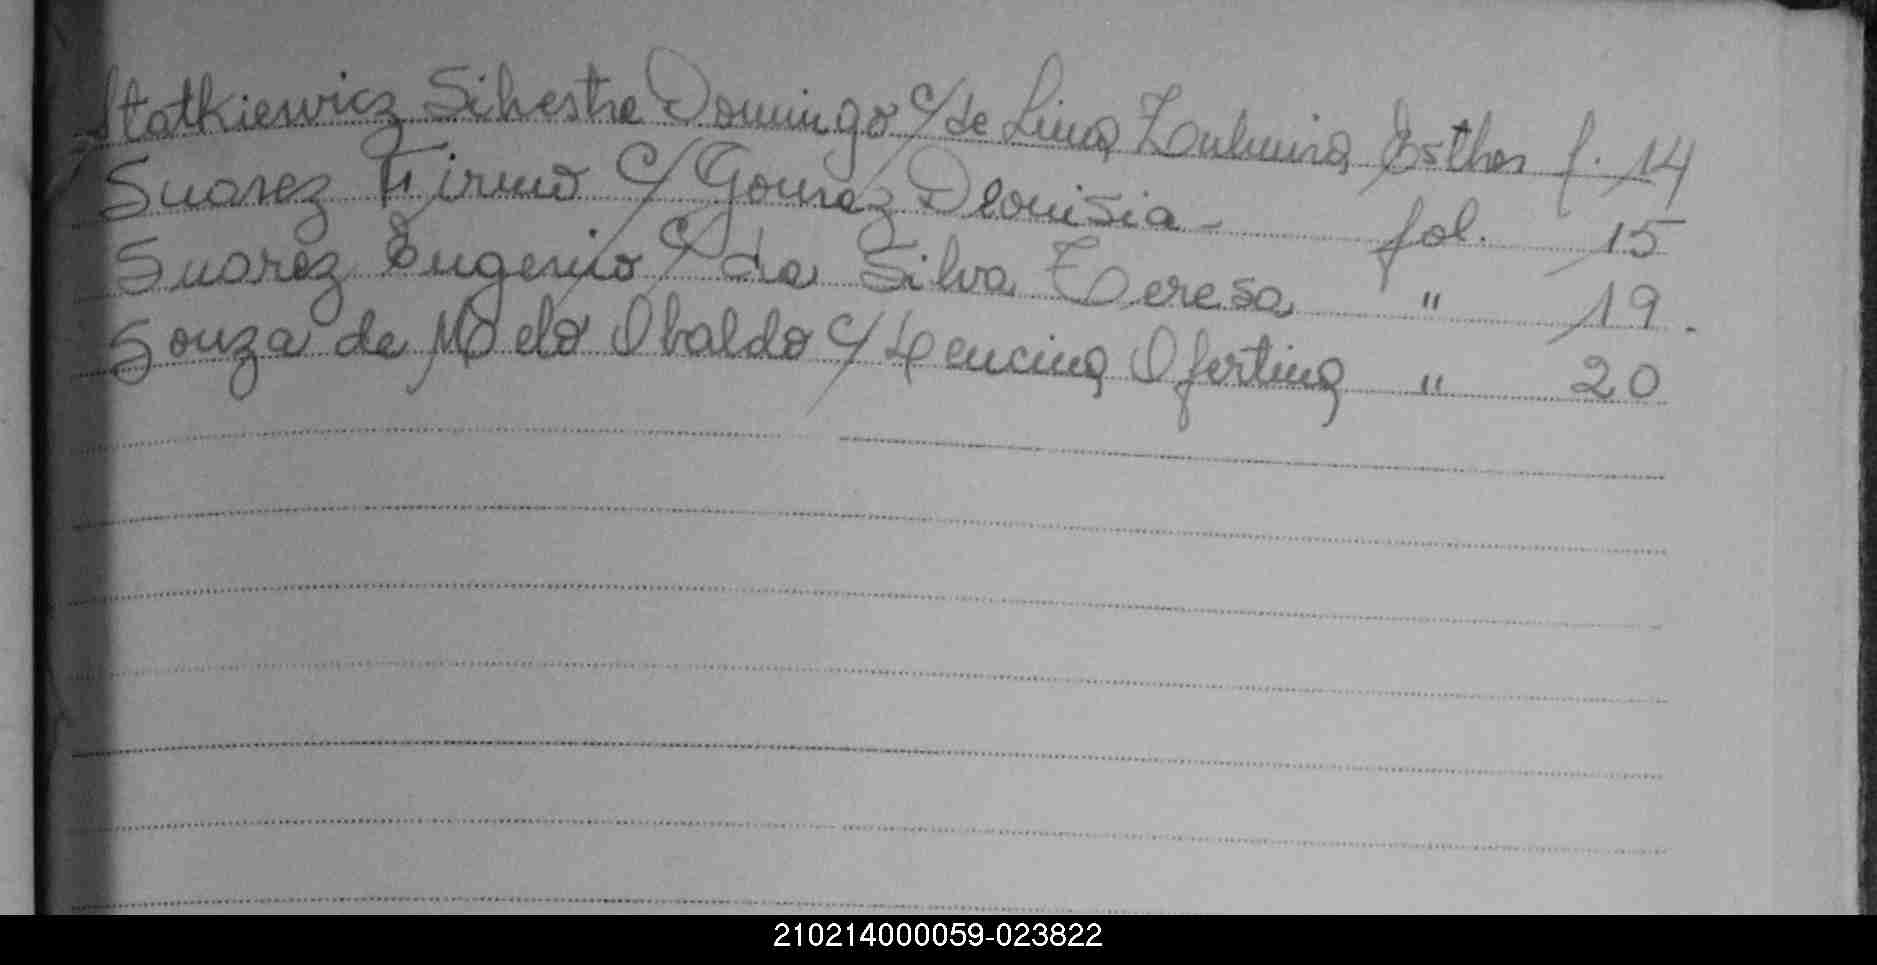 Statkiewicz Silvestre Domingo c/ de Lima Zulmira Esther f. 14
Suarez Firmo c/ Gomez Deonisia - fol. 15
Suarez Eugenio c/ da Silva Teresa " 19.
Souza de Melo Obaldo c/ Lencina Ofertina " 20
210214000059-023822